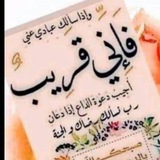 وإذا سألك عبادي عني
فإني قريب
أجيب دعوة الداع إذا دعان
رب نسألك رضاك والجنة